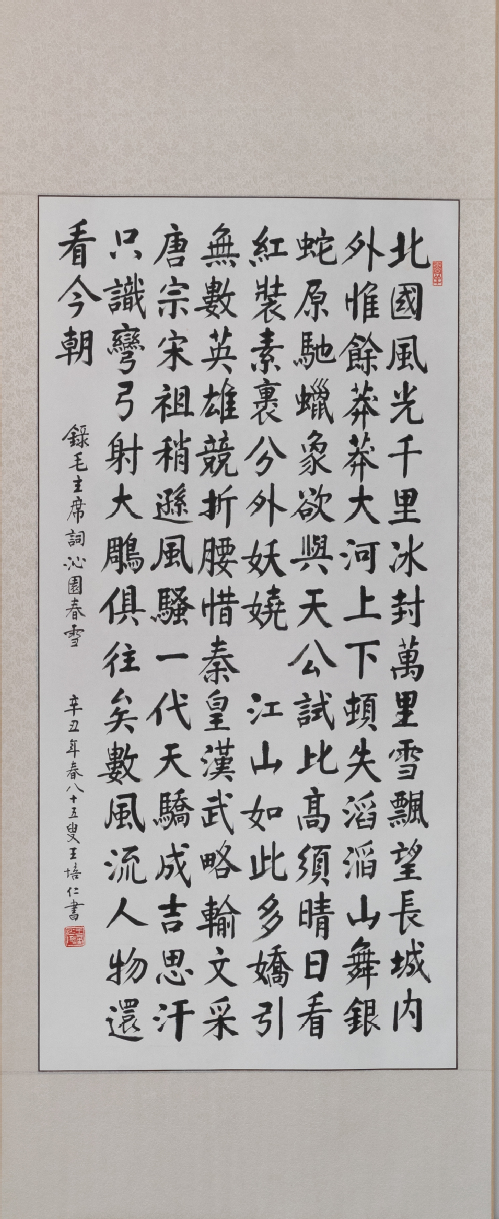 北國風光千里冰封萬里雪飄望長城内
外惟餘莽莽大河上下頓失滔滔山舞銀
蛇原馳蠟象欲與天公試比高須晴日看
紅裝素裹分外妖嬈　江山如此多嬌引
無數英雄競折腰惜秦皇漢武略輸文采
唐宗宋祖稍遜風騷一代天驕成吉思汗
只識彎弓射大雕俱往矣數風流人物還
看今朝
錄毛主席詞沁園春雪　辛丑年春八十五叟王培仁書